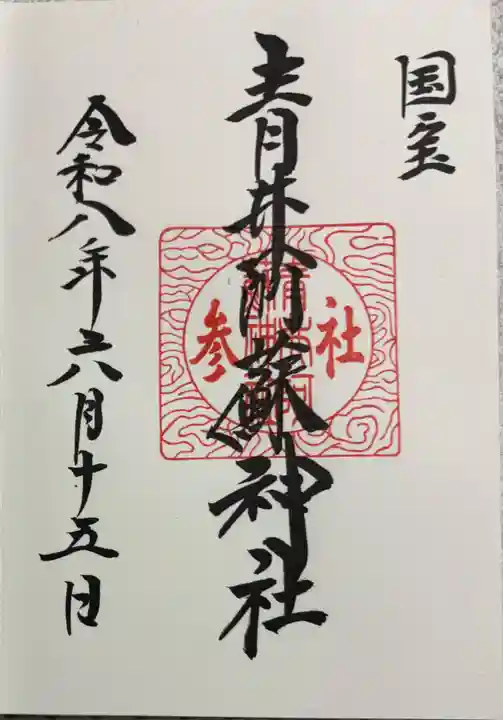 国宝
青井阿蘇神社
社参
令和八年六月十五日